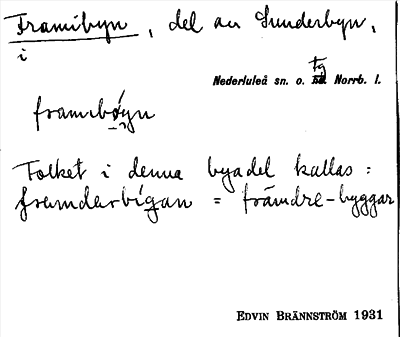 Framibyn, del av Sunderbyn,
i
Nederluleå sn. o. tg Norrb. l.
framıbýn
Folket i denna byadel kallas:
framdarbígan = främdre-byggar
EDVIN BRÄNNSTRÖM 1931